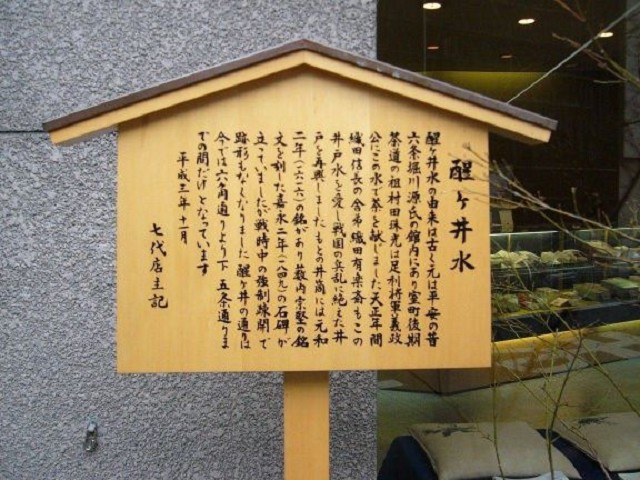 醒ヶ井水
醒ヶ井水の由来は古く元は平安の昔
六条堀川源氏の館内にあり室町後期
茶道の祖村田珠光は足利将軍義政
公にこの水で茶を献じました天正年間
織田信長の舎弟織田有楽斎もこの
井戸水を愛し戦国の兵乱に絶えた井
戸を再興しましたもとの井筒には元和
二年(一六一六)の銘があり薮内宗堅の銘
文を刻した嘉永二年(一八四九)の石碑が
立っていましたが戦時中の強制疎開で
跡形もなくなりました醒ヶ井の通りは
今では六角通りより下 五条通りま
での間だけとなっています
平成三年十一月
七代店主記